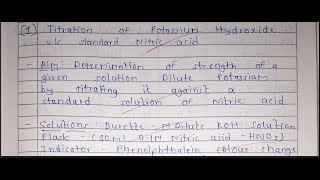 (1) Titration of Potassium Hydroxide
v/s standard Nitric acid
- Aim: Determination of strength of a
given solution Dilute Potassium
by titrating it against a
standard solution of Nitric acid
- Solutions: Burette - Dilute KOH Solution
Flask - (10ml) 0.1N Nitric acid - HNO3)
Indicator - Phenolphthalein colour change